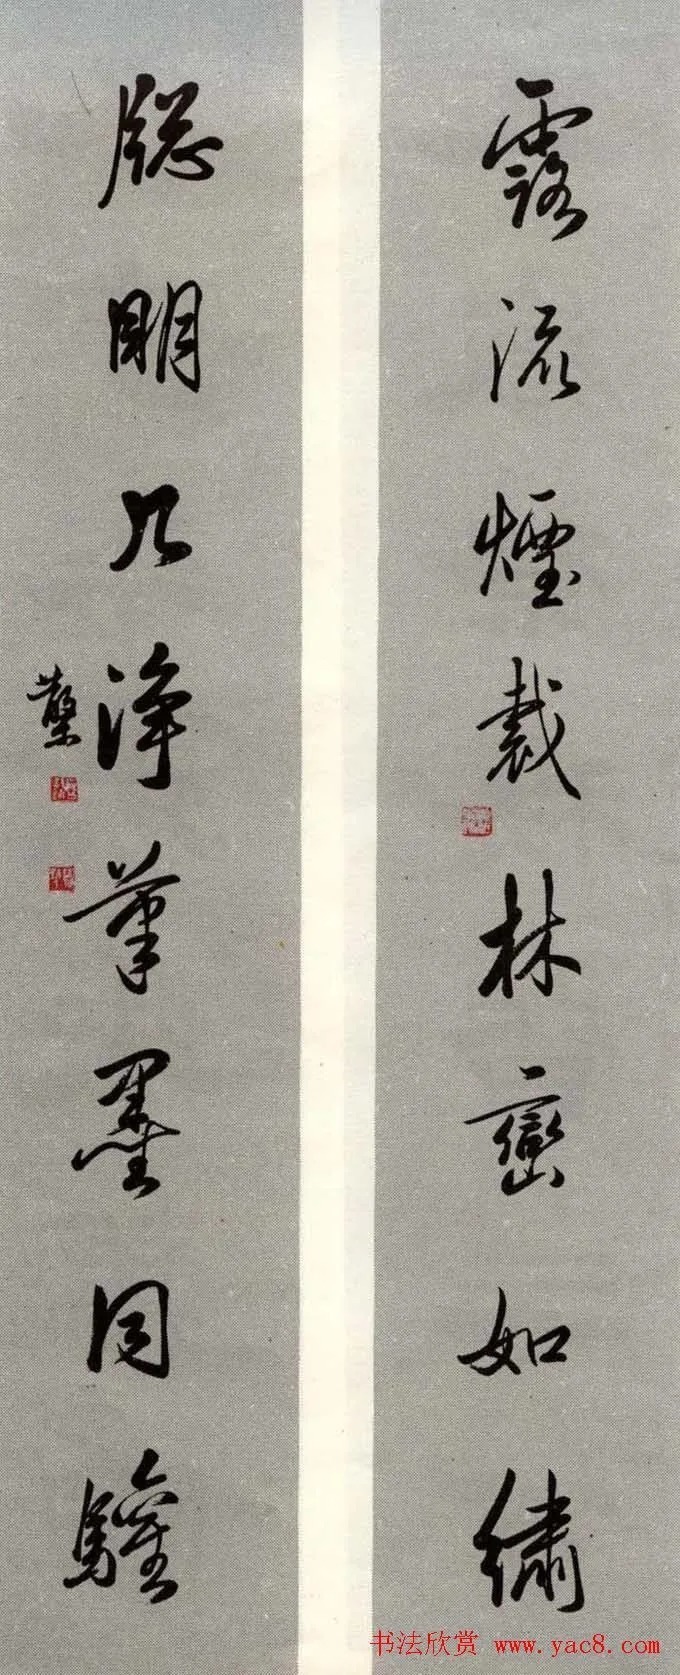 露流煙裁林巒如繡
牕朙几淨筆墨同驩
書法欣赏 www.yac8.com